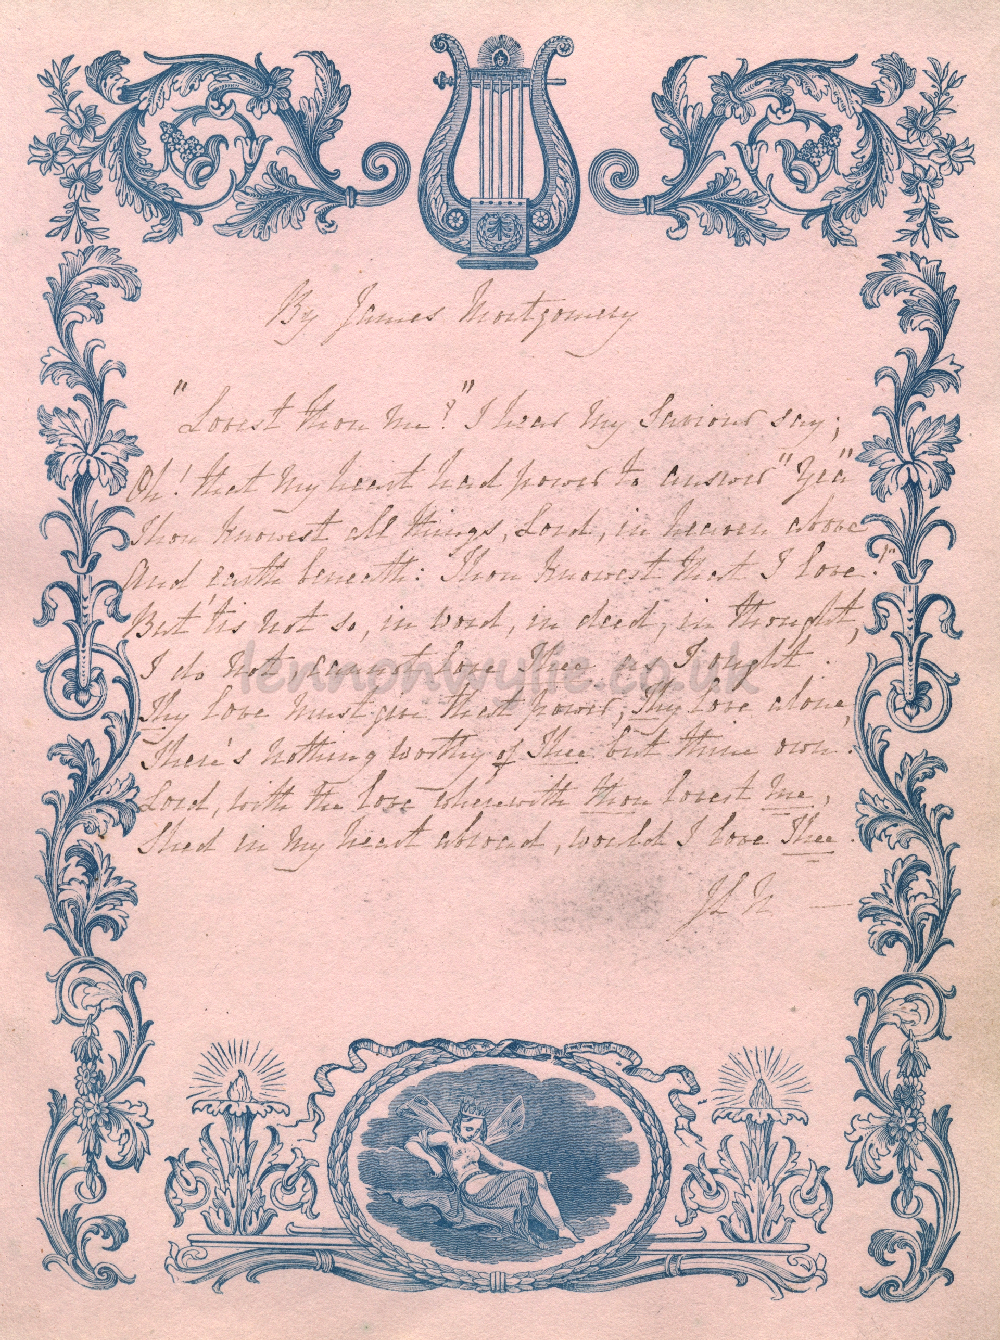 By James Montgomery
"Lovest thou me?" I hear my Saviour say;
Oh! that my heart had power to answer "Yea"
Thou knowest all things, Lord, in heaven above
And earth beneath: Thou knowest that I love."
But 'tis not so, in word, in deed, in thought,
I do not, cannot love Thee as I ought.
Thy love must give that power, Thy love alone,
There's nothing worthy of Thee but thine own.
Lord, with the love wherewith thou lovest me,
Shed in my heart abroad, would I love Thee.
lennonwylie.co.uk